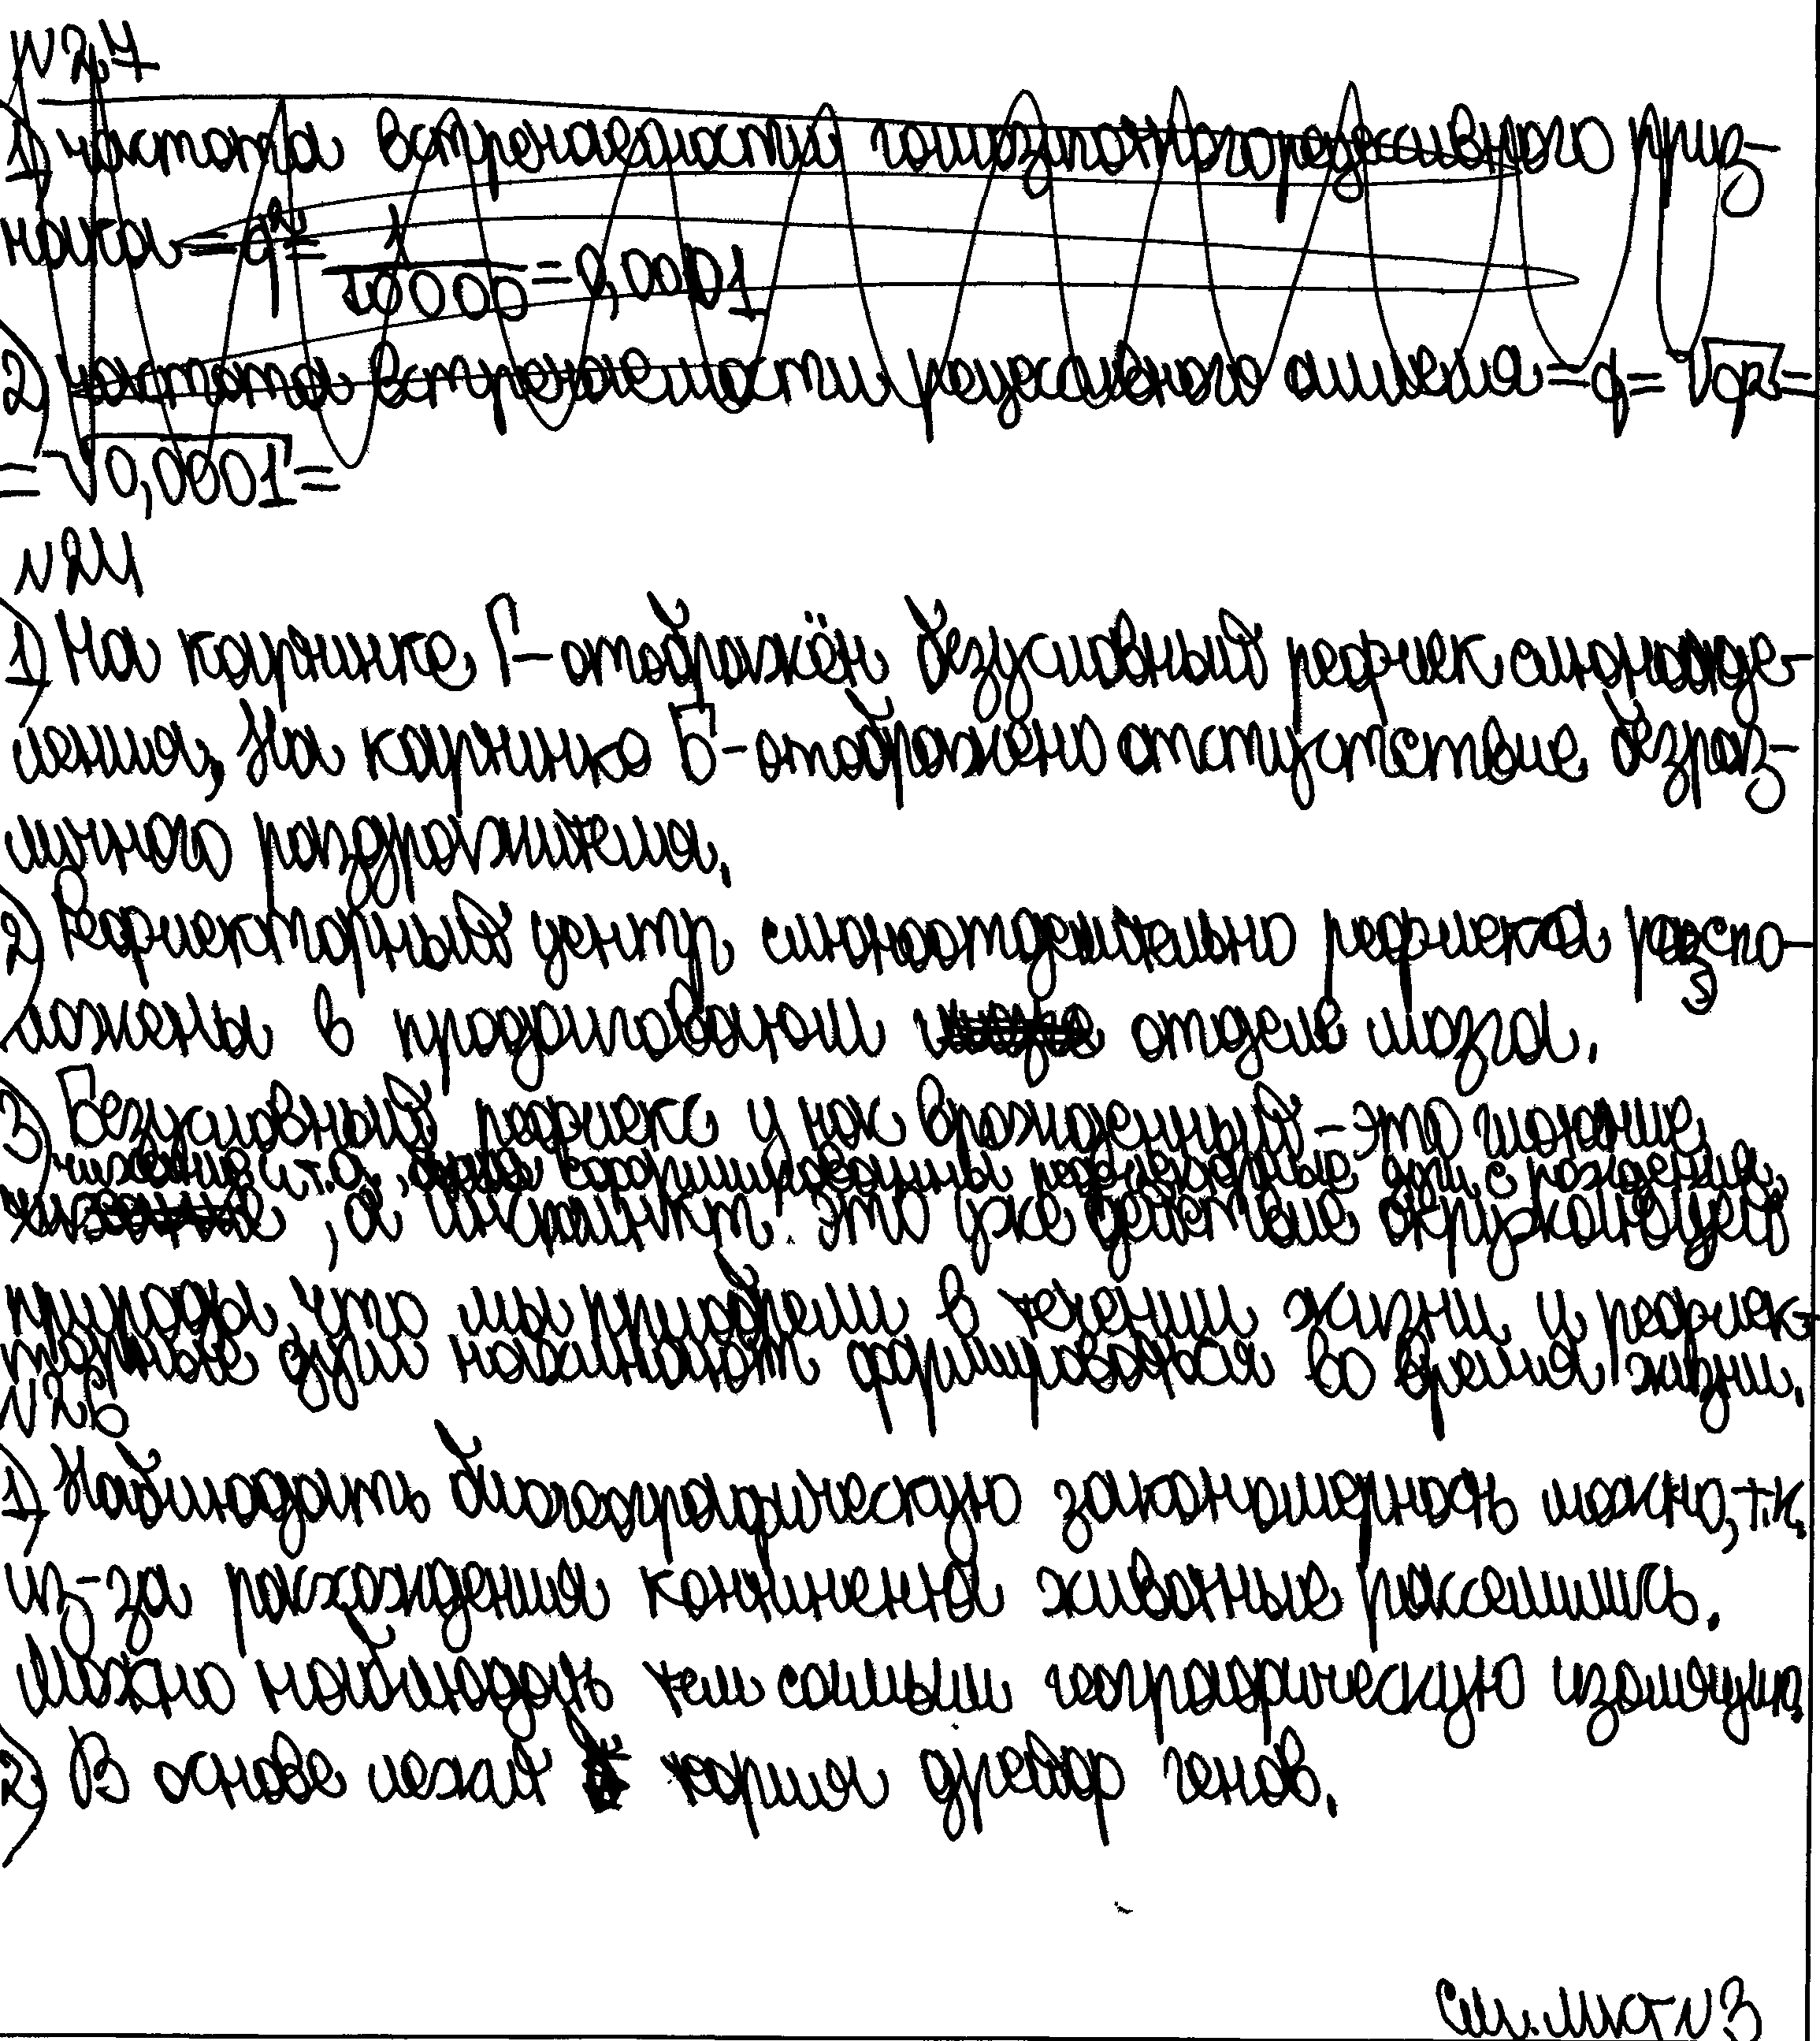 №27
1) частота встречаемости гомозиготного рецессивного приз-
нака = q² = 1/10000 = 0,0001
2) частота встречаемости рецессивного аллеля = q = √q² =
= √0,0001 =
№24
1) На картинке Г-отображён безусловный рефлек слюноотде-
ления, На картинке Б-отображено отстутствие безраз-
личного раздражителя.
2) Рефлекторный центр слюноотделительно рефлекса распо-
ложены в продолговатом отделе мозга.
3) Безусловный рефлекс у нас врождённый - это
сформированны рефлекторные дуги с рождения,
, а инстинкт это уже действие окружающей
природы, что мы приобрели в течении жизни и рефлек-
торные дуги начинают формироваться во время жизни.
№26
1) Наблюдать биогеографическую закономерность можно, т.к.
из-за расхождения континента животные расселились.
Можно наблюдать тем самым географическую изоляцию
2) В основе лежит форма дрейф генов.
См. лист №3